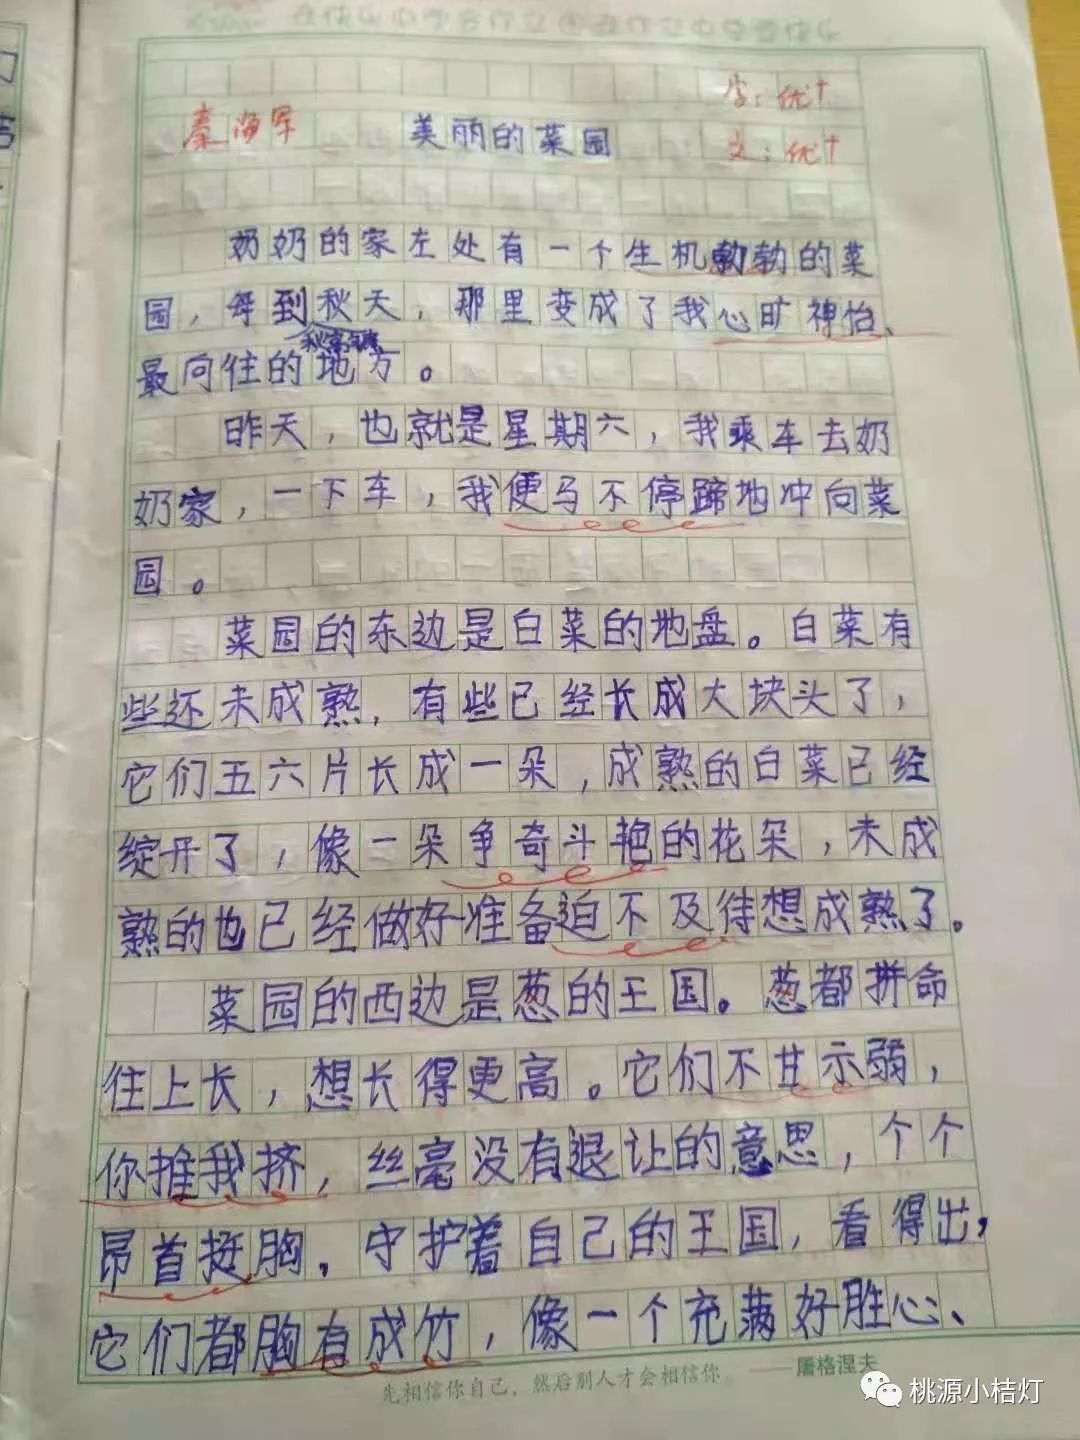 书：优+
秦海军 美丽的菜园 文：优+
奶奶的家左处有一个生机勃勃的菜
园，每到秋天，那里变成了我心旷神怡、
最向往的地方。
昨天，也就是星期六，我乘车去奶
奶家，一下车，我便马不停蹄地冲向菜
园。
菜园的东边是白菜的地盘。白菜有
些还未成熟，有些已经长成大块头了，
它们五六片长成一朵，成熟的白菜已经
绽开了，像一朵争奇斗艳的花朵，未成
熟的也已经做好准备迫不及待想成熟了。
菜园的西边是葱的王国。葱都拼命
往上长，想长得更高。它们不甘示弱，
你推我挤，丝毫没有退让的意思，个个
昂首挺胸，守护着自己的王国，看得出，
它们都胸有成竹，像一个充满好胜心、
先相信你自己，然后别人才会相信你。——屠格涅夫
桃源小桔灯